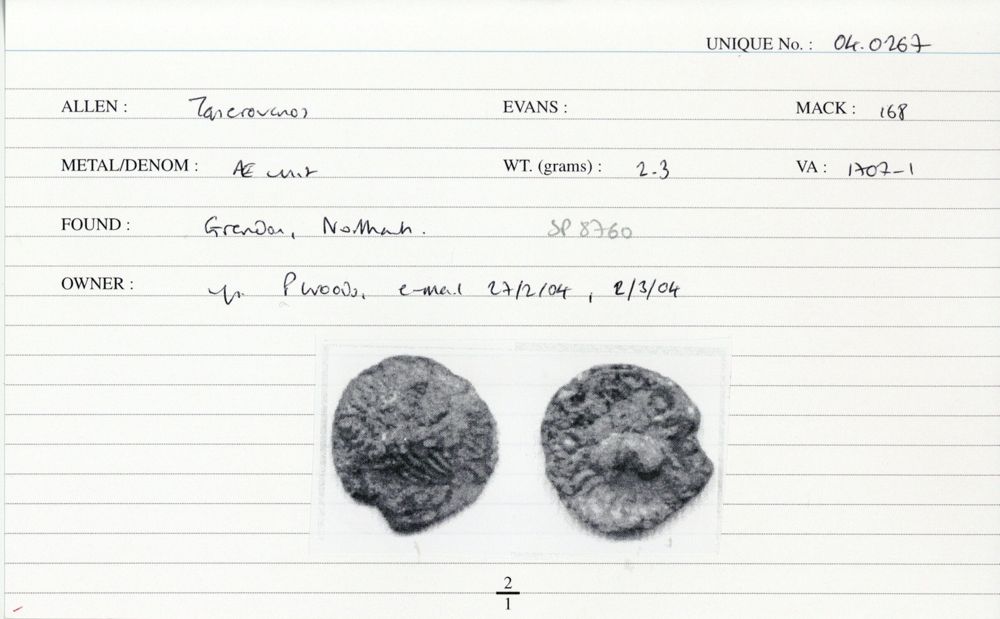 UNIQUE No. : 04.0267
ALLEN : Tasciovanos EVANS : MACK : 168
METAL/DENOM : Æ unit WT. (grams) : 2.3 VA : 1707-1
FOUND : Grendon, Northants. SP 8760
OWNER : P Woods, e-mail 27/2/04, 2/3/04
2
1